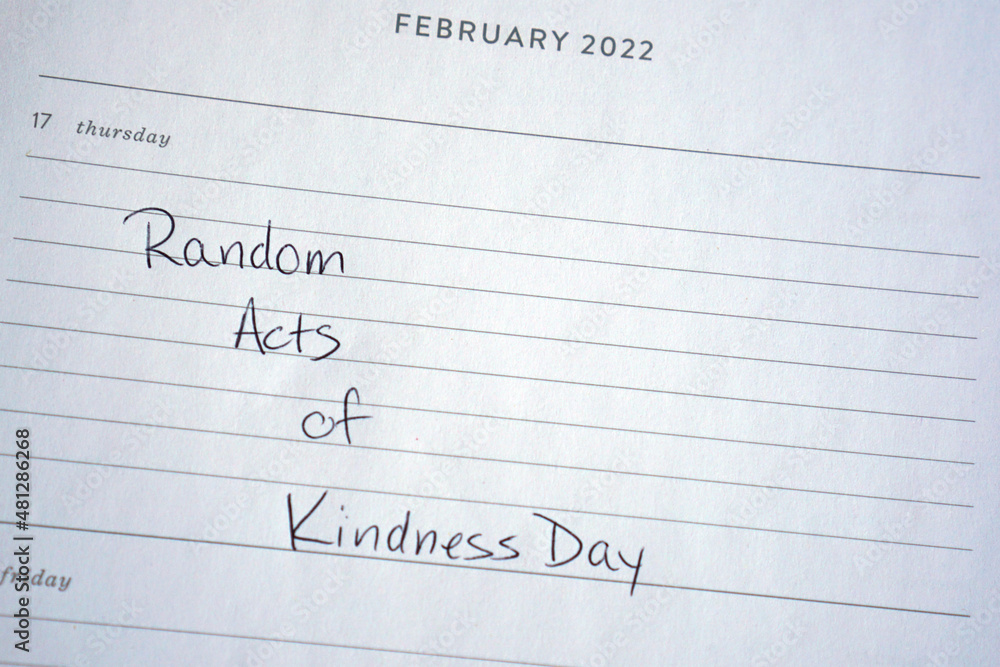 FEBRUARY 2022
17 thursday
Random
Acts
of
Kindness Day
friday
Adobe Stock | #481286268